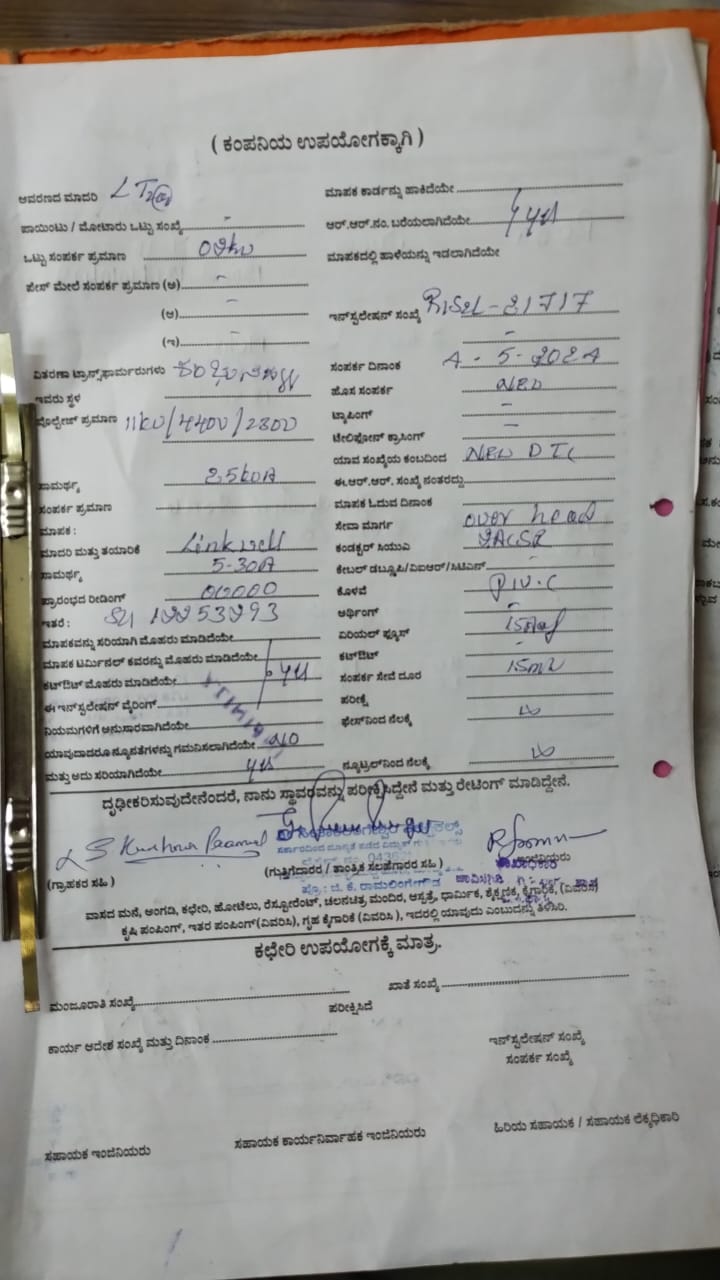 ( ಕಂಪನಿಯ ಉಪಯೋಗಕ್ಕಾಗಿ )
ಆವರಣದ ಮಾದರಿ LT2(a)
ಮಾಪಕ ಕಾರ್ಡನ್ನು ಹಾಕಿದೆಯೇ
ಪಾಯಿಂಟು / ಮೋಟಾರು ಒಟ್ಟು ಸಂಖ್ಯೆ -
ಆರ್.ಆರ್.ನಂ. ಬರೆಯಲಾಗಿದೆಯೇ yes
ಒಟ್ಟು ಸಂಪರ್ಕ ಪ್ರಮಾಣ
ಮಾಪಕದಲ್ಲಿ ಹಾಳೆಯನ್ನು ಇಡಲಾಗಿದೆಯೇ
ಪೇಸ್ ಮೇಲೆ ಸಂಪರ್ಕ ಪ್ರಮಾಣ (ಅ) -
(ಆ) -
ಇನ್‌ಸ್ಪಲೇಷನ್ ಸಂಖ್ಯೆ
(ಇ) -
-
ವಿತರಣಾ ಟ್ರಾನ್ಸ್‌ಫಾರ್ಮರುಗಳು
ಸಂಪರ್ಕ ದಿನಾಂಕ 4-5-2024
ಇವರು ಸ್ಥಳ
ಹೊಸ ಸಂಪರ್ಕ NEW
ವೋಲ್ಟೇಜ್ ಪ್ರಮಾಣ 11kv/440v/230v
ಟ್ಯಾಪಿಂಗ್ -
ಟೇಲಿಫೋನ್ ಕ್ರಾಸಿಂಗ್ -
ಯಾವ ಸಂಖ್ಯೆಯ ಕಂಬದಿಂದ NEW DTC
ಸಾಮರ್ಥ್ಯ 25kVA
ಈ.ಆರ್.ಆರ್. ಸಂಖ್ಯೆ ನಂತರದ್ದು
ಸಂಪರ್ಕ ಪ್ರಮಾಣ
ಮಾಪಕ ಓದುವ ದಿನಾಂಕ
ಮಾಪಕ :
ಸೇವಾ ಮಾರ್ಗ over head
ಮಾದರಿ ಮತ್ತು ತಯಾರಿಕೆ Linkwell
ಕಂಡಕ್ಟರ್ ಸಿಯುವಿ
ಸಾಮರ್ಥ್ಯ 5-30A
ಕೇಬಲ್ ಡಬ್ಲೂಪಿ/ವಿಐಆರ್/ಸಿಟಿಎಸ್ -
ಪ್ರಾರಂಭದ ರೀಡಿಂಗ್ 00000
ಕೊಳವೆ P.V.C
ಇತರೆ :
ಆರ್ಥಿಂಗ್ -
ಮಾಪಕವನ್ನು ಸರಿಯಾಗಿ ಮೊಹರು ಮಾಡಿದೆಯೇ
ಏರಿಯಲ್ ಫ್ಯೂಸ್
ಮಾಪಕ ಟರ್ಮಿನಲ್ ಕವರನ್ನು ಮೊಹರು ಮಾಡಿದೆಯೇ
ಕಟ್‌ಔಟ್ -
ಕಟ್‌ಔಟ್ ಮೊಹರು ಮಾಡಿದೆಯೇ yes
ಸಂಪರ್ಕ ಸೇವೆ ದೂರ
ಈ ಇನ್‌ಸ್ಪಲೇಷನ್ ವೈರಿಂಗ್
ಪರೀಕ್ಷೆ
ನಿಯಮಗಳಿಗೆ ಅನುಸಾರವಾಗಿದೆಯೇ
ಫೇಸ್‌ನಿಂದ ನೆಲಕ್ಕೆ
ಯಾವುದಾದರೂ ನ್ಯೂನತೆಗಳನ್ನು ಗಮನಿಸಲಾಗಿದೆಯೇ NO
ಮತ್ತು ಅದು ಸರಿಯಾಗಿದೆಯೇ yes
ನ್ಯೂಟ್ರಲ್‌ನಿಂದ ನೆಲಕ್ಕೆ
ದೃಢೀಕರಿಸುವುದೇನೆಂದರೆ, ನಾನು ಸ್ಥಾವರವನ್ನು ಪರೀಕ್ಷಿಸಿದ್ದೇನೆ ಮತ್ತು ರೇಟಿಂಗ್ ಮಾಡಿದ್ದೇನೆ.
(ಗ್ರಾಹಕರ ಸಹಿ )
(ಗುತ್ತಿಗೆದಾರರ / ತಾಂತ್ರಿಕ ಸಲಹೆಗಾರರ ಸಹಿ )
ವಾಸದ ಮನೆ, ಅಂಗಡಿ, ಕಛೇರಿ, ಹೋಟೆಲು, ರೆಸ್ಟೋರೆಂಟ್, ಚಲನಚಿತ್ರ ಮಂದಿರ, ಆಸ್ಪತ್ರೆ, ಧಾರ್ಮಿಕ, ಶೈಕ್ಷಣಿಕ, ಕೈಗಾರಿಕೆ, (ವಿವರಿಸಿ)
ಕೃಷಿ ಪಂಪಿಂಗ್, ಇತರ ಪಂಪಿಂಗ್(ವಿವರಿಸಿ), ಗೃಹ ಕೈಗಾರಿಕೆ (ವಿವರಿಸಿ ), ಇದರಲ್ಲಿ ಯಾವುದು ಎಂಬುದನ್ನು ತಿಳಿಸಿರಿ.
ಕಛೇರಿ ಉಪಯೋಗಕ್ಕೆ ಮಾತ್ರ.
ಮಂಜೂರಾತಿ ಸಂಖ್ಯೆ
ಖಾತೆ ಸಂಖ್ಯೆ
ಪರೀಕ್ಷಿಸಿದೆ
ಕಾರ್ಯ ಆದೇಶ ಸಂಖ್ಯೆ ಮತ್ತು ದಿನಾಂಕ
ಇನ್‌ಸ್ಪಲೇಷನ್ ಸಂಖ್ಯೆ
ಸಂಪರ್ಕ ಸಂಖ್ಯೆ
ಸಹಾಯಕ ಇಂಜಿನಿಯರು
ಸಹಾಯಕ ಕಾರ್ಯನಿರ್ವಾಹಕ ಇಂಜಿನಿಯರು
ಹಿರಿಯ ಸಹಾಯಕ / ಸಹಾಯಕ ಲೆಕ್ಕಧಿಕಾರಿ